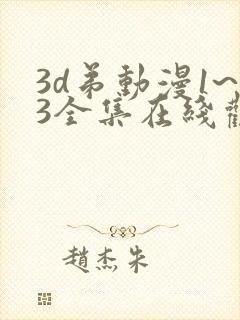 3d弟動漫1~
3全集在綫觀
趙杰朱